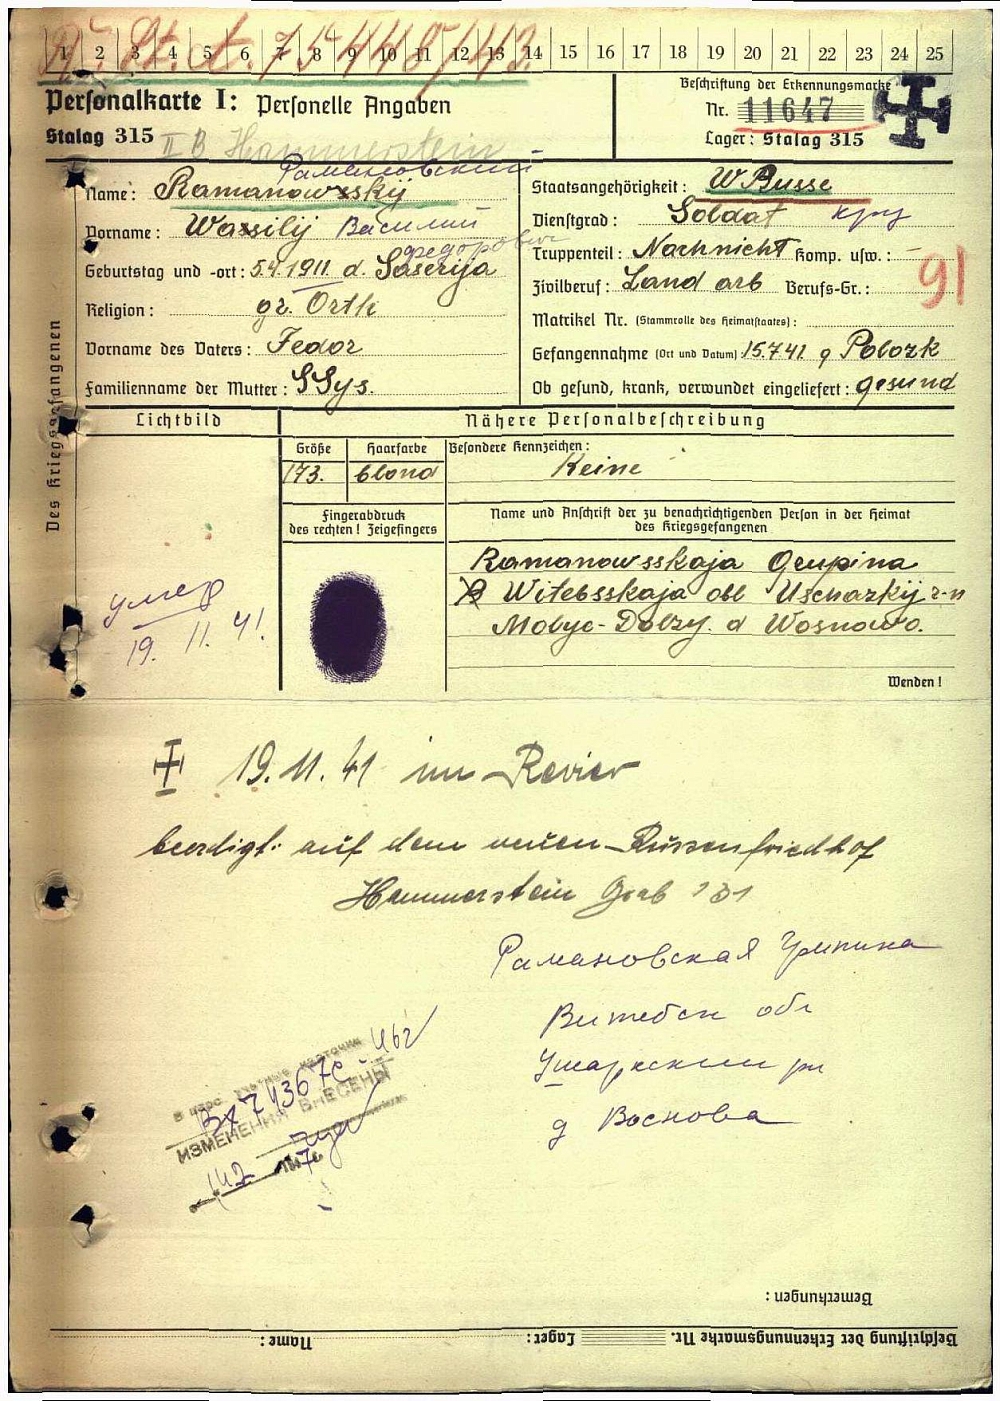 1 2 3 4 5 6 7 8 9 10 11 12 13 14 15 16 17 18 19 20 21 22 23 24 25
Personalkarte I: Personelle Angaben
Stalag 315 II B Hammerstein
Beschriftung der Erkennungsmarke
Nr. 11647
Lager: Stalag 315
Des Kriegsgefangenen
Рамановский
Name: Ramanowsskij
Vorname: Wassilij Василий
Федорович
Geburtstag und -ort: 5.4.1911. d. Saserija
Religion: gr. Orth
Vorname des Vaters: Fedor
Familienname der Mutter: SSys.
Staatsangehörigkeit: W Russe
Dienstgrad: Soldat
Truppenteil: Nachnicht Komp. usw.:
Zivilberuf: Land arb Berufs-Gr.:
91
Matrikel Nr. (Stammrolle des Heimatstaates):
Gefangennahme (Ort und Datum) 15.7.41 g Polozk
Ob gesund, krank, verwundet eingeliefert: gesund
Lichtbild
Nähere Personalbeschreibung
Größe Haarfarbe Besondere Kennzeichen:
173. blond Keine
Fingerabdruck
des rechten! Zeigefingers
Name und Anschrift der zu benachrichtigenden Person in der Heimat
des Kriegsgefangenen
Ramanowsskaja
Witebsskaja obl Uscharzkij r-n
d Wosnowo.
умер
19. 11. 41.
Wenden!
19.11.41 im Revier
beerdigt: auf dem neuen Russenfriedhof
Hammerstein Grab 131
Рамановская
Витебск обл
Ушарский рн
д Воснова
ИЗМЕНЕНИЯ ВНЕСЕНЫ
Bemerkungen:
Beschriftung der Erkennungsmarke Nr. Lager: Name: